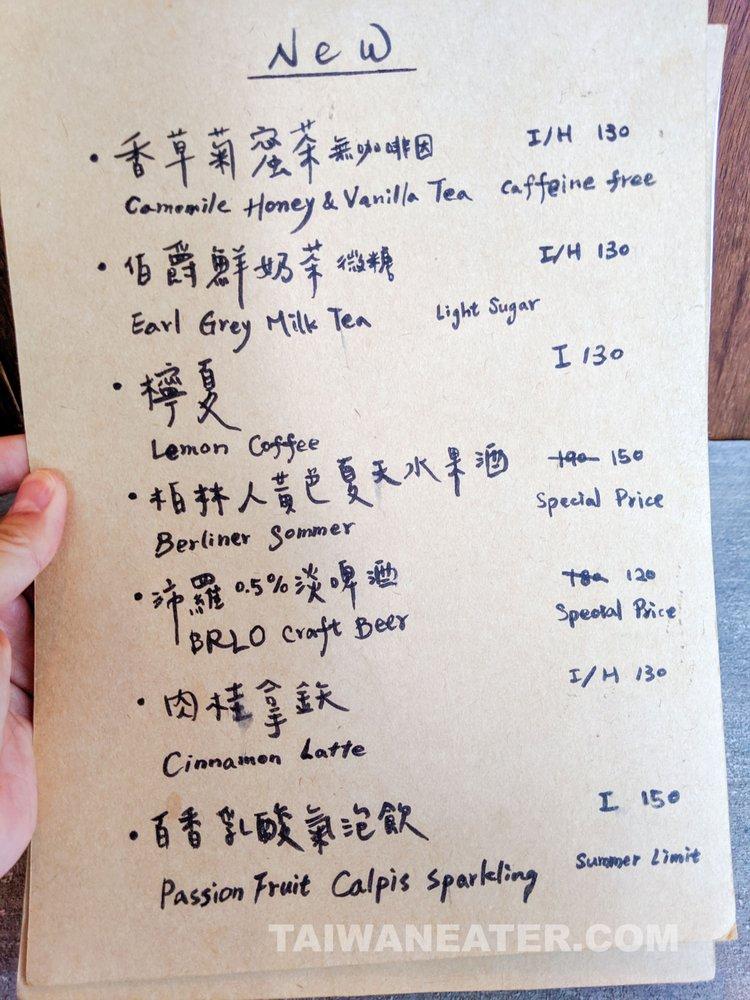 New
• 香草菊蜜茶 無咖啡因 I/H 130
Camomile Honey & Vanilla Tea Caffeine free
• 伯爵鮮奶茶 微糖 I/H 130
Earl Grey Milk Tea Light Sugar
• 檸夏 I 130
Lemon Coffee
• 柏林人黃色夏天水果酒 190 150
Berliner Sommer Special Price
• 沛羅 0.5% 淡啤酒 180 120
BRLO Craft Beer Special Price
• 肉桂拿鉄 I/H 130
Cinnamon Latte
• 百香乳酸氣泡飲 I 150
Passion Fruit Calpis Sparkling Summer Limit
TAIWANEATER.COM